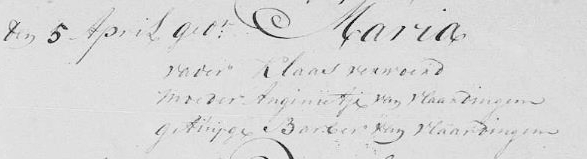 den 5 April gedt. Maria
vader Klaas verwoerd
moeder Angenietje van vlaardingen
getuyge Barber van vlaardingen